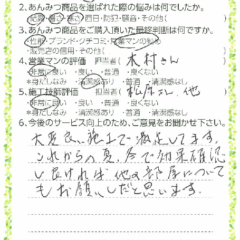 2.あんみつ商品を選ばれた際の悩みは何でしたか。
西日・防犯・騒音・その他(
3.あんみつ商品をご購入頂いた最終判断は何ですか。
性能・ブランド・クチコミ・営業マンの
販売店の信用・その他(
4.営業マンの評価 担当者( 木村さん
非常に良い ・良い ・普通 ・良くない
*身だしなみ ・清潔感あり ・普通 ・清潔感なし
5.施工技術評価 担当者( 松居さん、他
非常に良い ・良い ・普通 ・良くない
*身だしなみ ・清潔感あり ・普通 ・清潔感なし
6.今後のサービス向上のため、ご意見をお聞かせ下さい。
大変良い施工で満足してます。
これからの夏、冬で効果確認
し良ければ他の部屋について
もお願いしたいと思います。